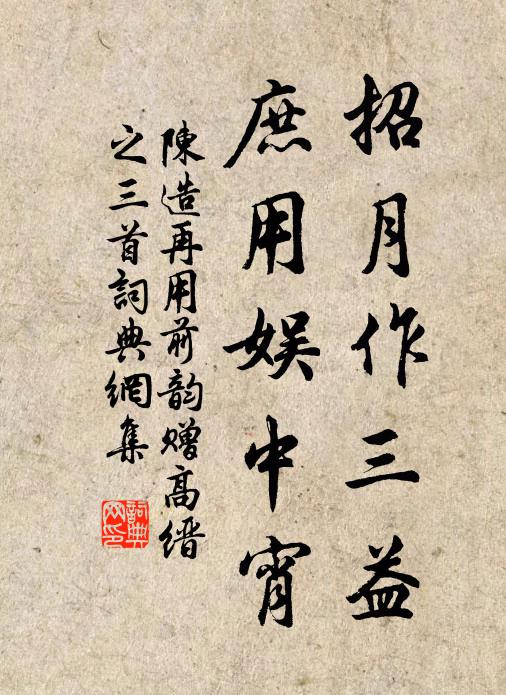 招月作三益
庶用娱中宵
陳造再用前韵赠高缙
之三首詞典網集
詞典
网印